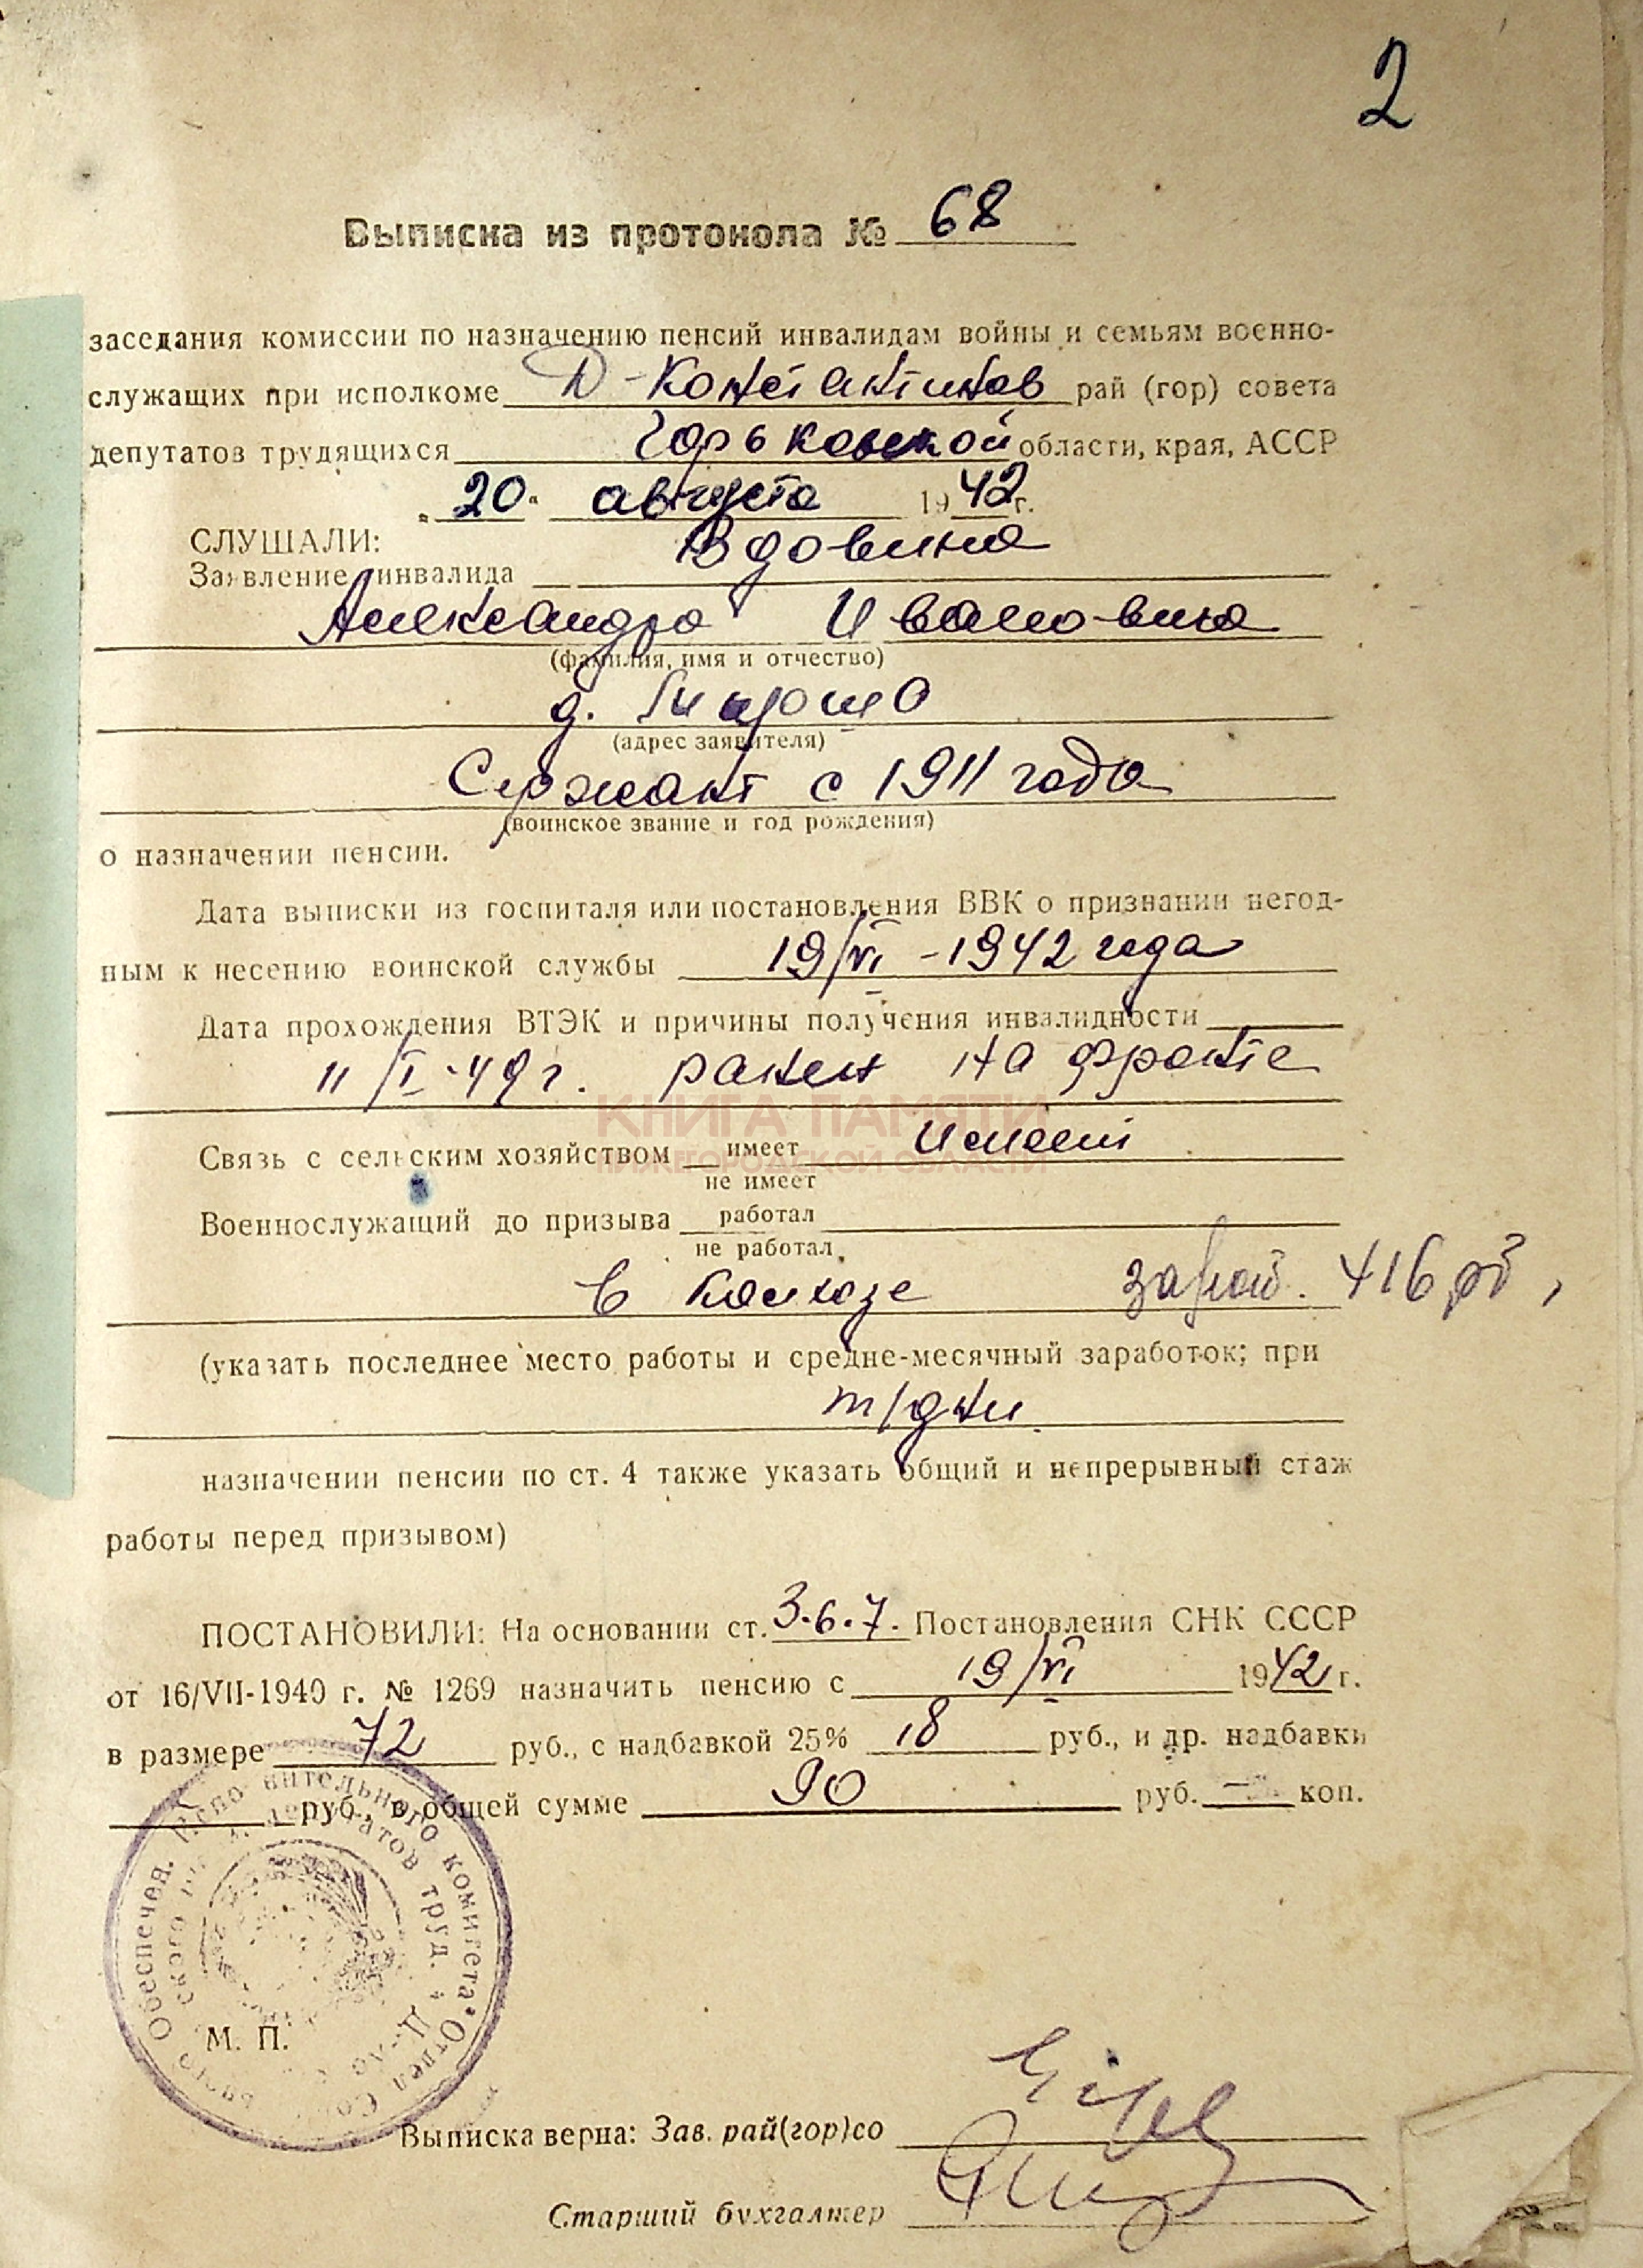 2
Выписка из протокола № 68
заседания комиссии по назначению пенсий инвалидам войны и семьям военно-
служащих при исполкоме Д-Константинов рай (гор) совета
депутатов трудящихся Горьковской области, края, АССР
„20“ августа 1942 г.
СЛУШАЛИ: Вдовина
Заявление инвалида
Александра Ивановича
(фамилия, имя и отчество)
д.
(адрес заявителя)
Сержант с 1911 года
(воинское звание и год рождения)
о назначении пенсии.
Дата выписки из госпиталя или постановления ВВК о признании негод-
ным к несению воинской службы 19/VI -1942 года
Дата прохождения ВТЭК и причины получения инвалидности
11/I-49 г. ранен на фронте
КНИГА ПАМЯТИ
Связь с сельским хозяйством имеет Имеет
НИЖЕГОРОДСКОЙ ОБЛАСТИ
не имеет
Военнослужащий до призыва работал
не работал
в колхозе 416 рб,
(указать последнее место работы и средне-месячный заработок; при
т/дни
назначении пенсии по ст. 4 также указать общий и непрерывный стаж
работы перед призывом)
ПОСТАНОВИЛИ: На основании ст. 3.6.7. Постановления СНК СССР
от 16/VII-1940 г. № 1269 назначить пенсию с 19/VI 1942 г.
в размере 72 руб., с надбавкой 25% 18 руб., и др. надбавки
руб., в общей сумме 90 руб. — коп.
Исполнительного комитета * Отдел Соц. Обеспечен.
депутатов труд.
М. П.
Выписка верна: Зав. рай(гор)со
Старший бухгалтер